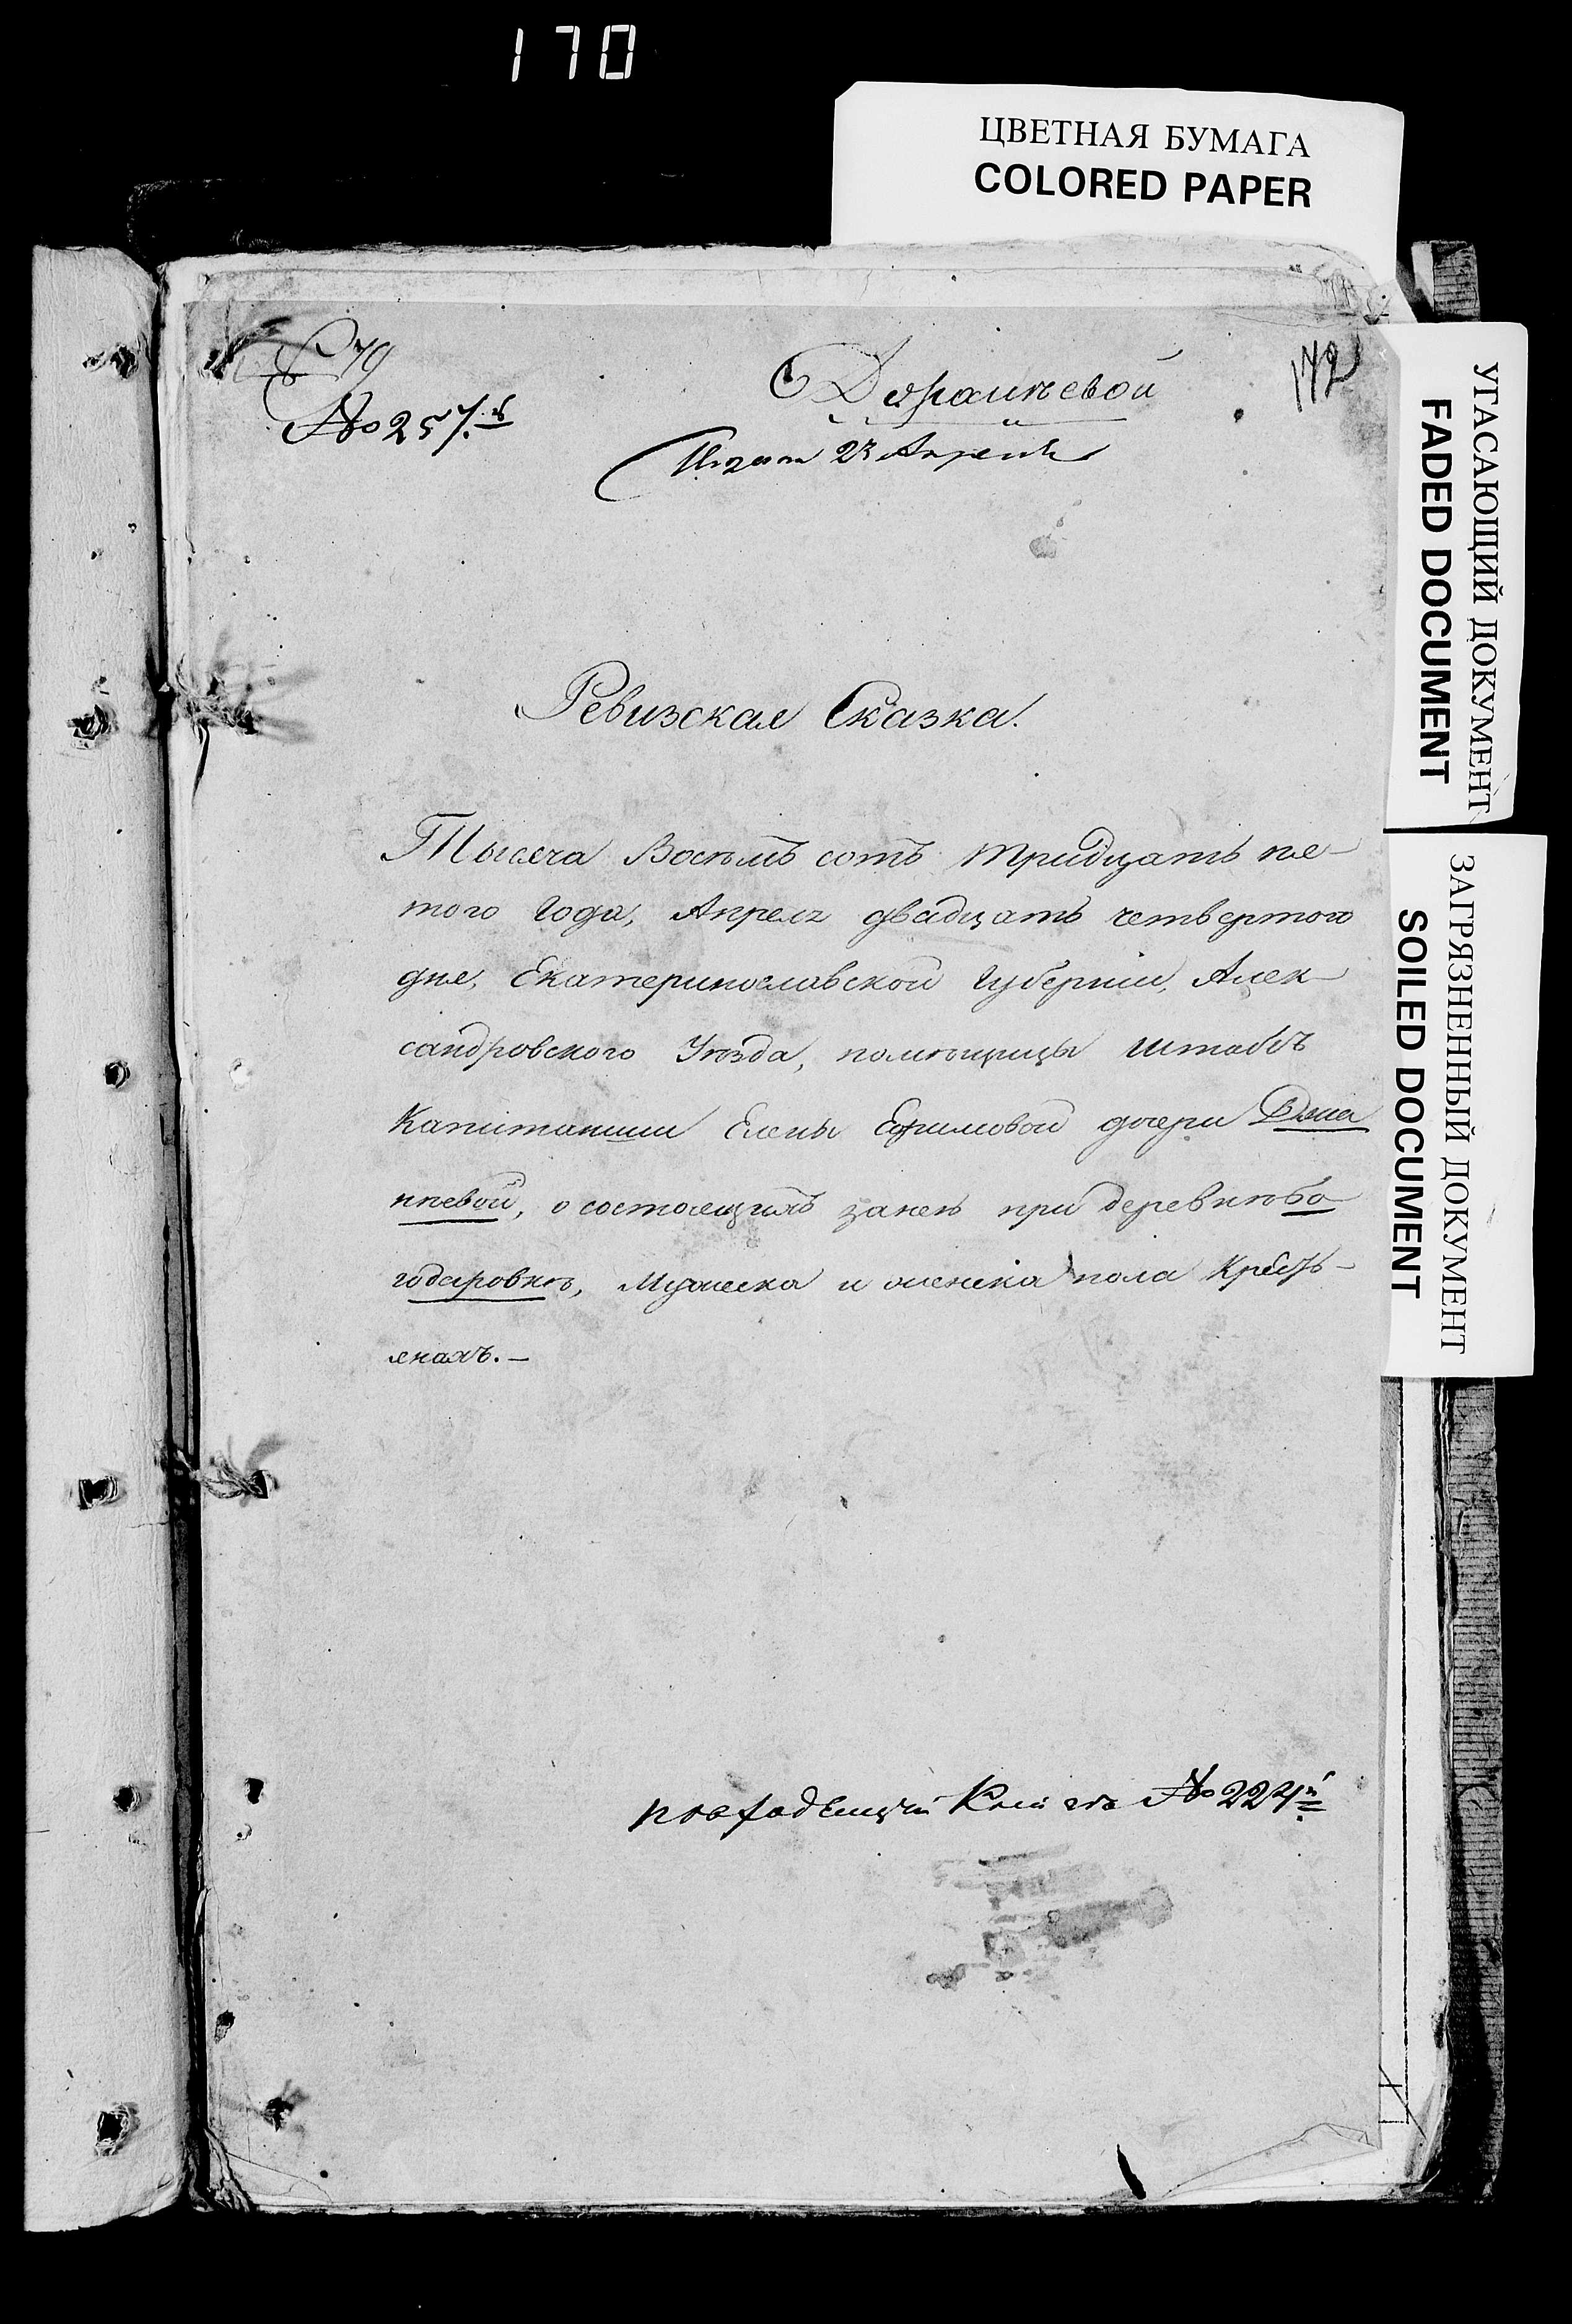 170
ЦВЕТНАЯ БУМАГА
COLORED PAPER
УГАСАЮЩИЙ ДОКУМЕНТ
FADED DOCUMENT
ЗАГРЯЗНЕННЫЙ ДОКУМЕНТ
SOILED DOCUMENT
79
172
№ 257.
23 Апреля
Ревизская Сказка.
Тысяча Восемь сотъ тридцать пя-
того года, Апреля двадцать четвертого
дня, Екатеринославской Губерніи, Алек-
сандровского Уѣзда, помѣщицы штабсъ
Капитанши Елены Ефимовой дочери
невой, о состоящихъ занею при деревнѣ Бо
годаровкѣ, Мужеска и женска пола Кресть-
янахъ.-
Книги № 224й